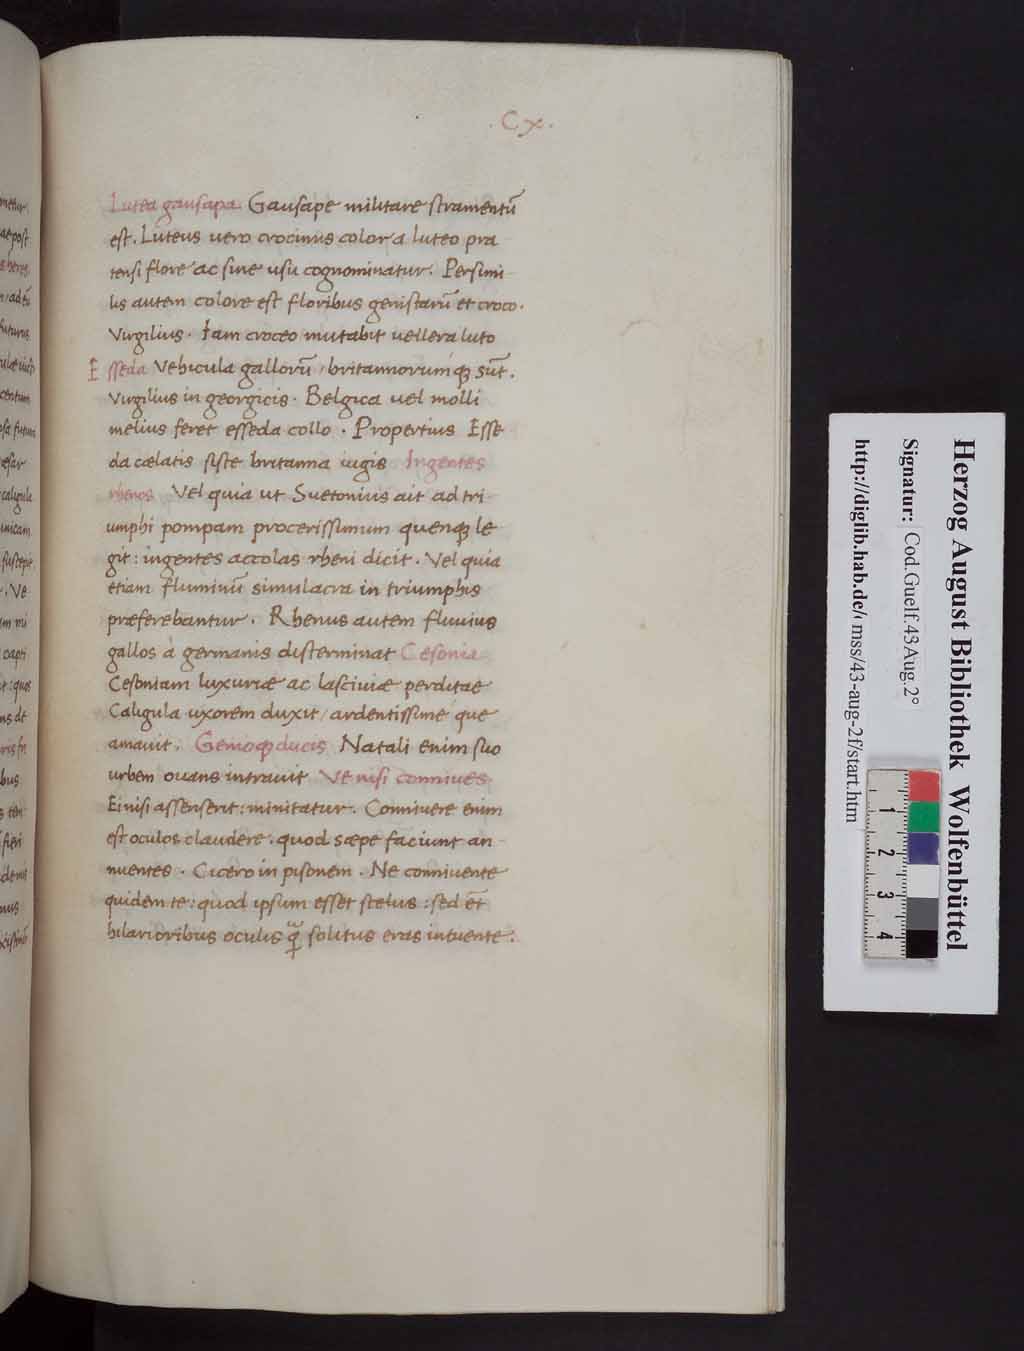 . Cx .
Lutea gausapa. Gausape militare stramentū
est. Luteus vero crocinus color a luteo pra
tensi flore ac sine usu cognominatur. Persimi-
lis autem colore est floribus genistarū et croco.
Virgilius. Iam croceo mutabit vellera luto
Esseda Vehicula gallorū, britannorumq3 sūt.
Virgilius in georgicis. Belgica vel molli
melius feret esseda collo. Propertius Esse-
da cælatis siste britanna iugis Ingentes
rhenos. Vel quia ut Suetonius ait ad tri-
umphi pompam procerissimum quenq3 le
git: ingentes accolas rheni dicit. Vel quia
etiam fluminū simulacra in triumphis
præferebantur. Rhenus autem fluvius
gallos à germanis disterminat Cesonia
Cesoniam luxuriæ ac lasciviæ perditae
Caligula uxorem duxit, ardentissime que
amavit. Genioq3 ducis Natali enim suo
urbem ovans intravit Ve nisi connives.
Ei nisi assenserit: minitatur. Connivere enim
est oculos claudere: quod sæpe faciunt an-
nuentes. Cicero in pisonem. Ne connivente
quidem te: quod ipsum esset scelus: sed ēt
hilarioribus oculis solitus eras intuente:
Herzog August Bibliothek Wolfenbüttel
Signatur: Cod.Guelf.43 Aug.2°
http://diglib.hab.de/ mss/43-aug-2f/start.htm
1
2
3
4